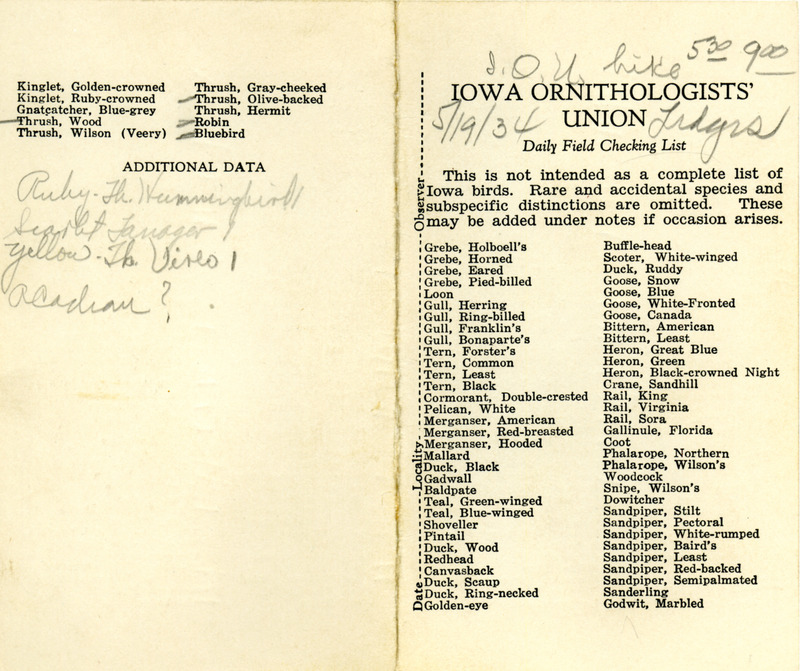 Kinglet, Golden-crowned
Kinglet, Ruby-crowned
Gnatcatcher, Blue-grey
Thrush, Wood
Thrush, Wilson (Veery)
Thrush, Gray-cheeked
Thrush, Olive-backed
Thrush, Hermit
Robin
Bluebird
ADDITIONAL DATA
Ruby-Th. Hummingbird 1
Scarlet Tanager 1
Yellow-Th. Vireo 1
Acadian ?
I.O.U. hike 5:30 9:00
IOWA ORNITHOLOGISTS'
UNION
5/19/34
Daily Field Checking List
This is not intended as a complete list of
Iowa birds. Rare and accidental species and
subspecific distinctions are omitted. These
may be added under notes if occasion arises.
Date
Locality
Observer
Grebe, Holboell's
Grebe, Horned
Grebe, Eared
Grebe, Pied-billed
Loon
Gull, Herring
Gull, Ring-billed
Gull, Franklin's
Gull, Bonaparte's
Tern, Forster's
Tern, Common
Tern, Least
Tern, Black
Cormorant, Double-crested
Pelican, White
Merganser, American
Merganser, Red-breasted
Merganser, Hooded
Mallard
Duck, Black
Gadwall
Baldpate
Teal, Green-winged
Teal, Blue-winged
Shoveller
Pintail
Duck, Wood
Redhead
Canvasback
Duck, Scaup
Duck, Ring-necked
Golden-eye
Buffle-head
Scoter, White-winged
Duck, Ruddy
Goose, Snow
Goose, Blue
Goose, White-Fronted
Goose, Canada
Bittern, American
Bittern, Least
Heron, Great Blue
Heron, Green
Heron, Black-crowned Night
Crane, Sandhill
Rail, King
Rail, Virginia
Rail, Sora
Gallinule, Florida
Coot
Phalarope, Northern
Phalarope, Wilson's
Woodcock
Snipe, Wilson's
Dowitcher
Sandpiper, Stilt
Sandpiper, Pectoral
Sandpiper, White-rumped
Sandpiper, Baird's
Sandpiper, Least
Sandpiper, Red-backed
Sandpiper, Semipalmated
Sanderling
Godwit, Marbled